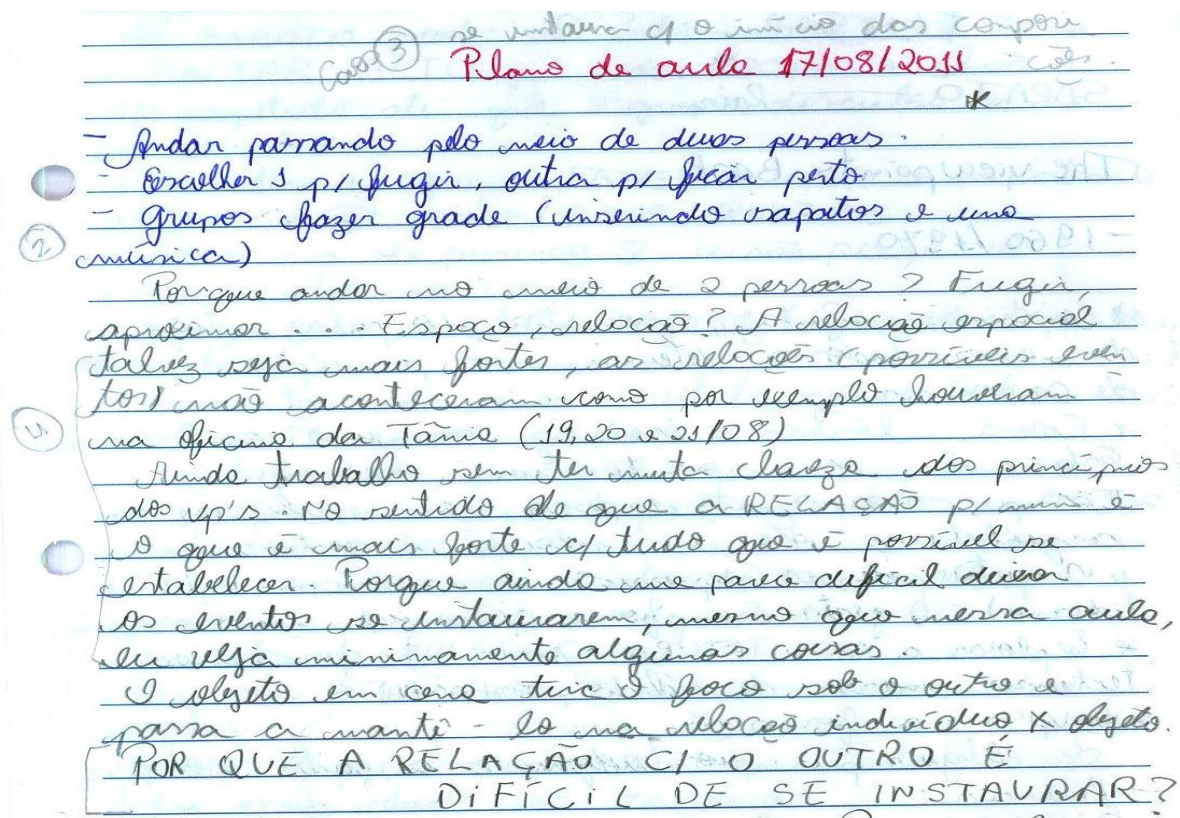 se instaura c/ o início das compori
Caos 3 Plano de aula 17/08/2011 ções.
- Andar passando pelo meio de duas pessoas.
- Escolher 1 p/ fugir, outra p/ ficar perto
- Grupos fazer grade (inserindo sapatos e uma
2 música)
Porque andar no meio de 2 pessoas? Fugir,
aproximar... Espaço, relação? A relação espacial
talvez seja mais fortes, as relações (possíveis even
4 tos) não aconteceram como por exemplo houveram
na oficina da Tânia (19, 20 e 21/08)
Ainda trabalho sem ter muita clareza dos princípios
dos vp's. No sentido de que a RELAÇÃO p/ mim é
o que é mais forte c/ tudo que é possível se
estabelecer. Porque ainda me parece difícil deixar
os eventos se instaurarem, mesmo que nessa aula,
eu veja minimamente algumas coisas.
O objeto em cena tira o foco sob o outro e
passa a mantê-lo na relação indivíduo X objeto.
POR QUE A RELAÇÃO C/ O OUTRO É
DIFÍCIL DE SE INSTAURAR?